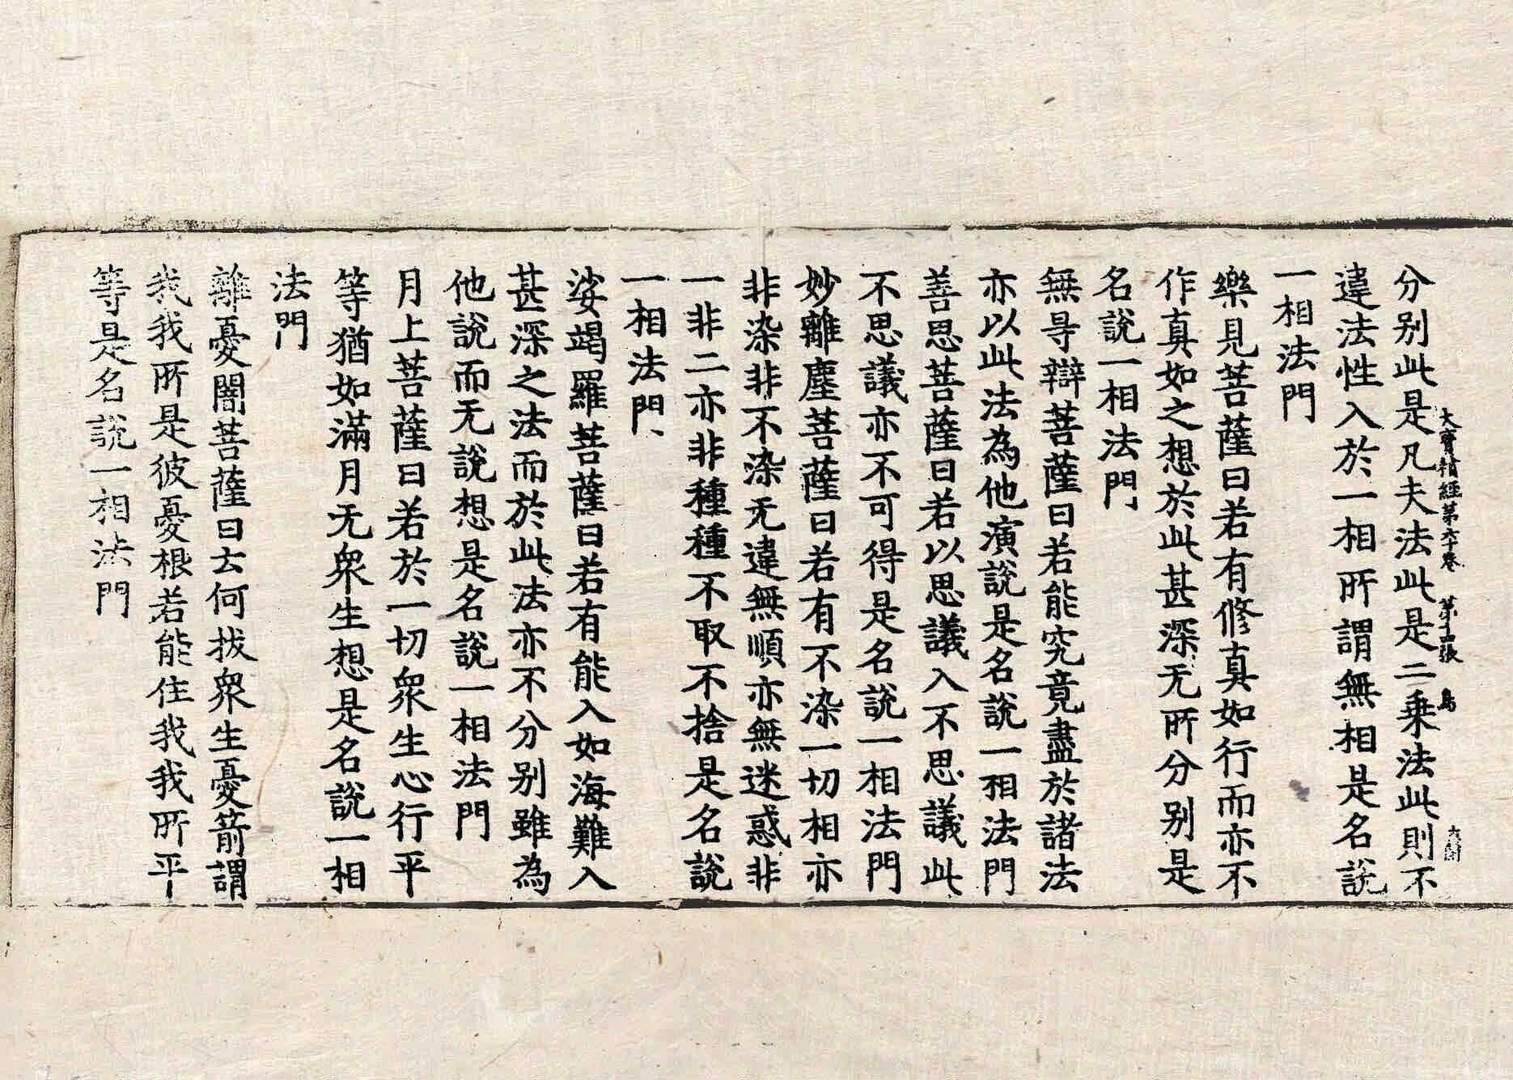 大寶積經第六十卷 第十四張 鳥
分别此是凡夫法此是二乗法此則不
違法性入於一相所謂無相是名説
一相法門
樂見菩薩曰若有修真如行而亦不
作真如之想於此甚深无所分别是
名説一相法門
無㝵辯菩薩曰若能究竟盡於諸法
亦以此法為他演説是名説一相法門
善思菩薩曰若以思議入不思議此
不思議亦不可得是名説一相法門
妙離塵菩薩曰若有不染一切相亦
非染非不染无違無順亦無迷惑非
一非二亦非種種不取不捨是名説
一相法門
娑竭羅菩薩曰若有能入如海難入
甚深之法而於此法亦不分别雖為
他説而无説想是名説一相法門
月上菩薩曰若於一切衆生心行平
等猶如滿月无衆生想是名説一相
法門
離憂闇菩薩曰云何拔衆生憂箭謂
我我所是彼憂根若能住我我所平
等是名説一相法門